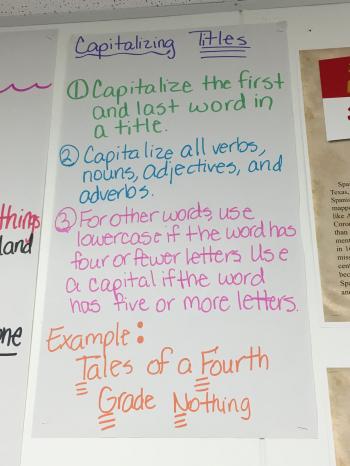 Capitalizing Titles
① Capitalize the first
and last word in
a title.
② Capitalize all verbs,
nouns, adjectives, and
adverbs.
③ For other words, use
lowercase if the word has
four or fewer letters. Use
a capital if the word
has five or more letters.
Example:
Tales of a Fourth
Grade Nothing
things
land
one
Texas,
Spani
mappe
like A
Coron
than
in 1
miss
cent
bec
Spa
and